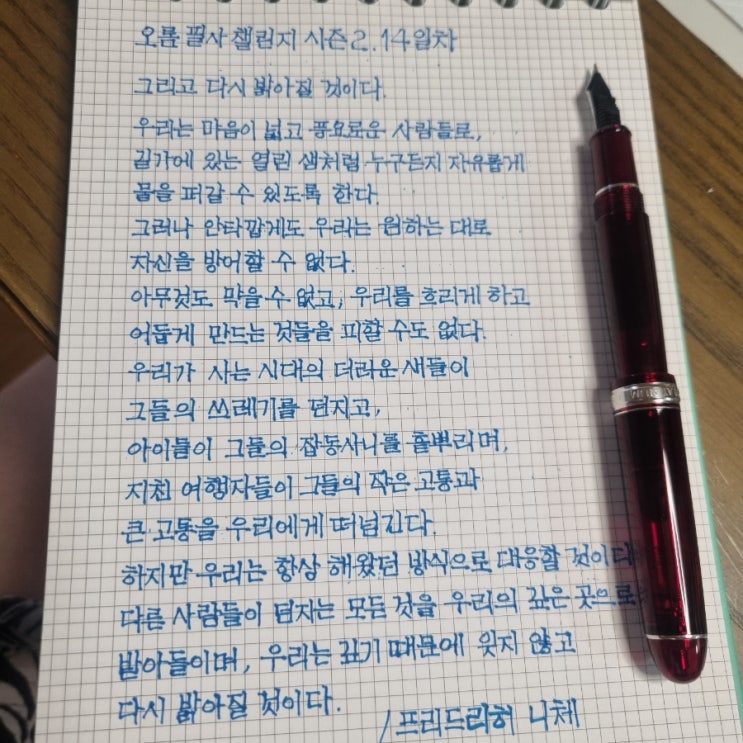 오름 필사 챌린지 시즌2. 14일차
그리고 다시 밝아질 것이다.
우리는 마음이 넓고 풍요로운 사람들로,
길가에 있는 열린 샘처럼 누구든지 자유롭게
물을 퍼갈 수 있도록 한다.
그러나 안타깝게도 우리는 원하는 대로
자신을 방어할 수 없다.
아무것도 막을 수 없고, 우리를 흐리게 하고
어둡게 만드는 것들을 피할 수도 없다.
우리가 사는 시대의 더러운 새들이
그들의 쓰레기를 던지고,
아이들이 그들의 잡동사니를 흩뿌리며,
지친 여행자들이 그들의 작은 고통과
큰 고통을 우리에게 떠넘긴다.
하지만 우리는 항상 해왔던 방식으로 대응할 것이다
다른 사람들이 던지는 모든 것을 우리의 깊은 곳으로
받아들이며, 우리는 깊기 때문에 잊지 않고
다시 밝아질 것이다.
/프리드리히 니체